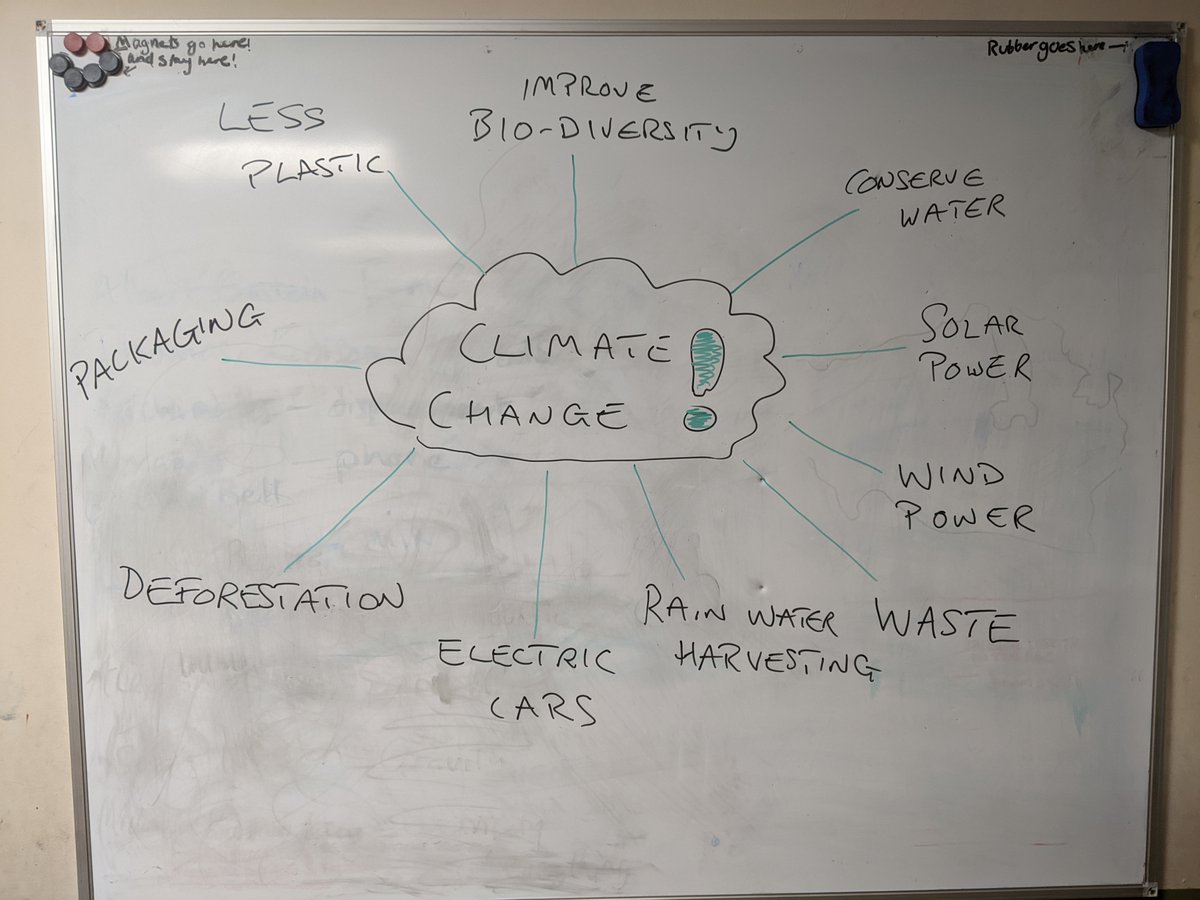 Magnets go here!
and stay here!
Rubber goes here
LESS
PLASTIC
IMPROVE
BIO-DIVERSITY
CONSERVE
WATER
SOLAR
POWER
WIND
POWER
WASTE
RAIN WATER
HARVESTING
ELECTRIC
CARS
DEFORESTATION
PACKAGING
CLIMATE
CHANGE !
phone
Bell